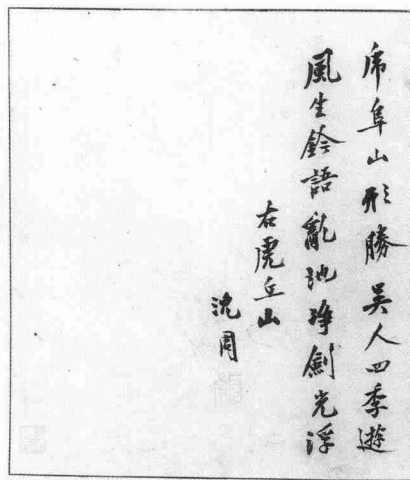 虎阜山形勝吳人四季遊
風生鈴語亂池浄劍光浮
右虎丘山
沈周